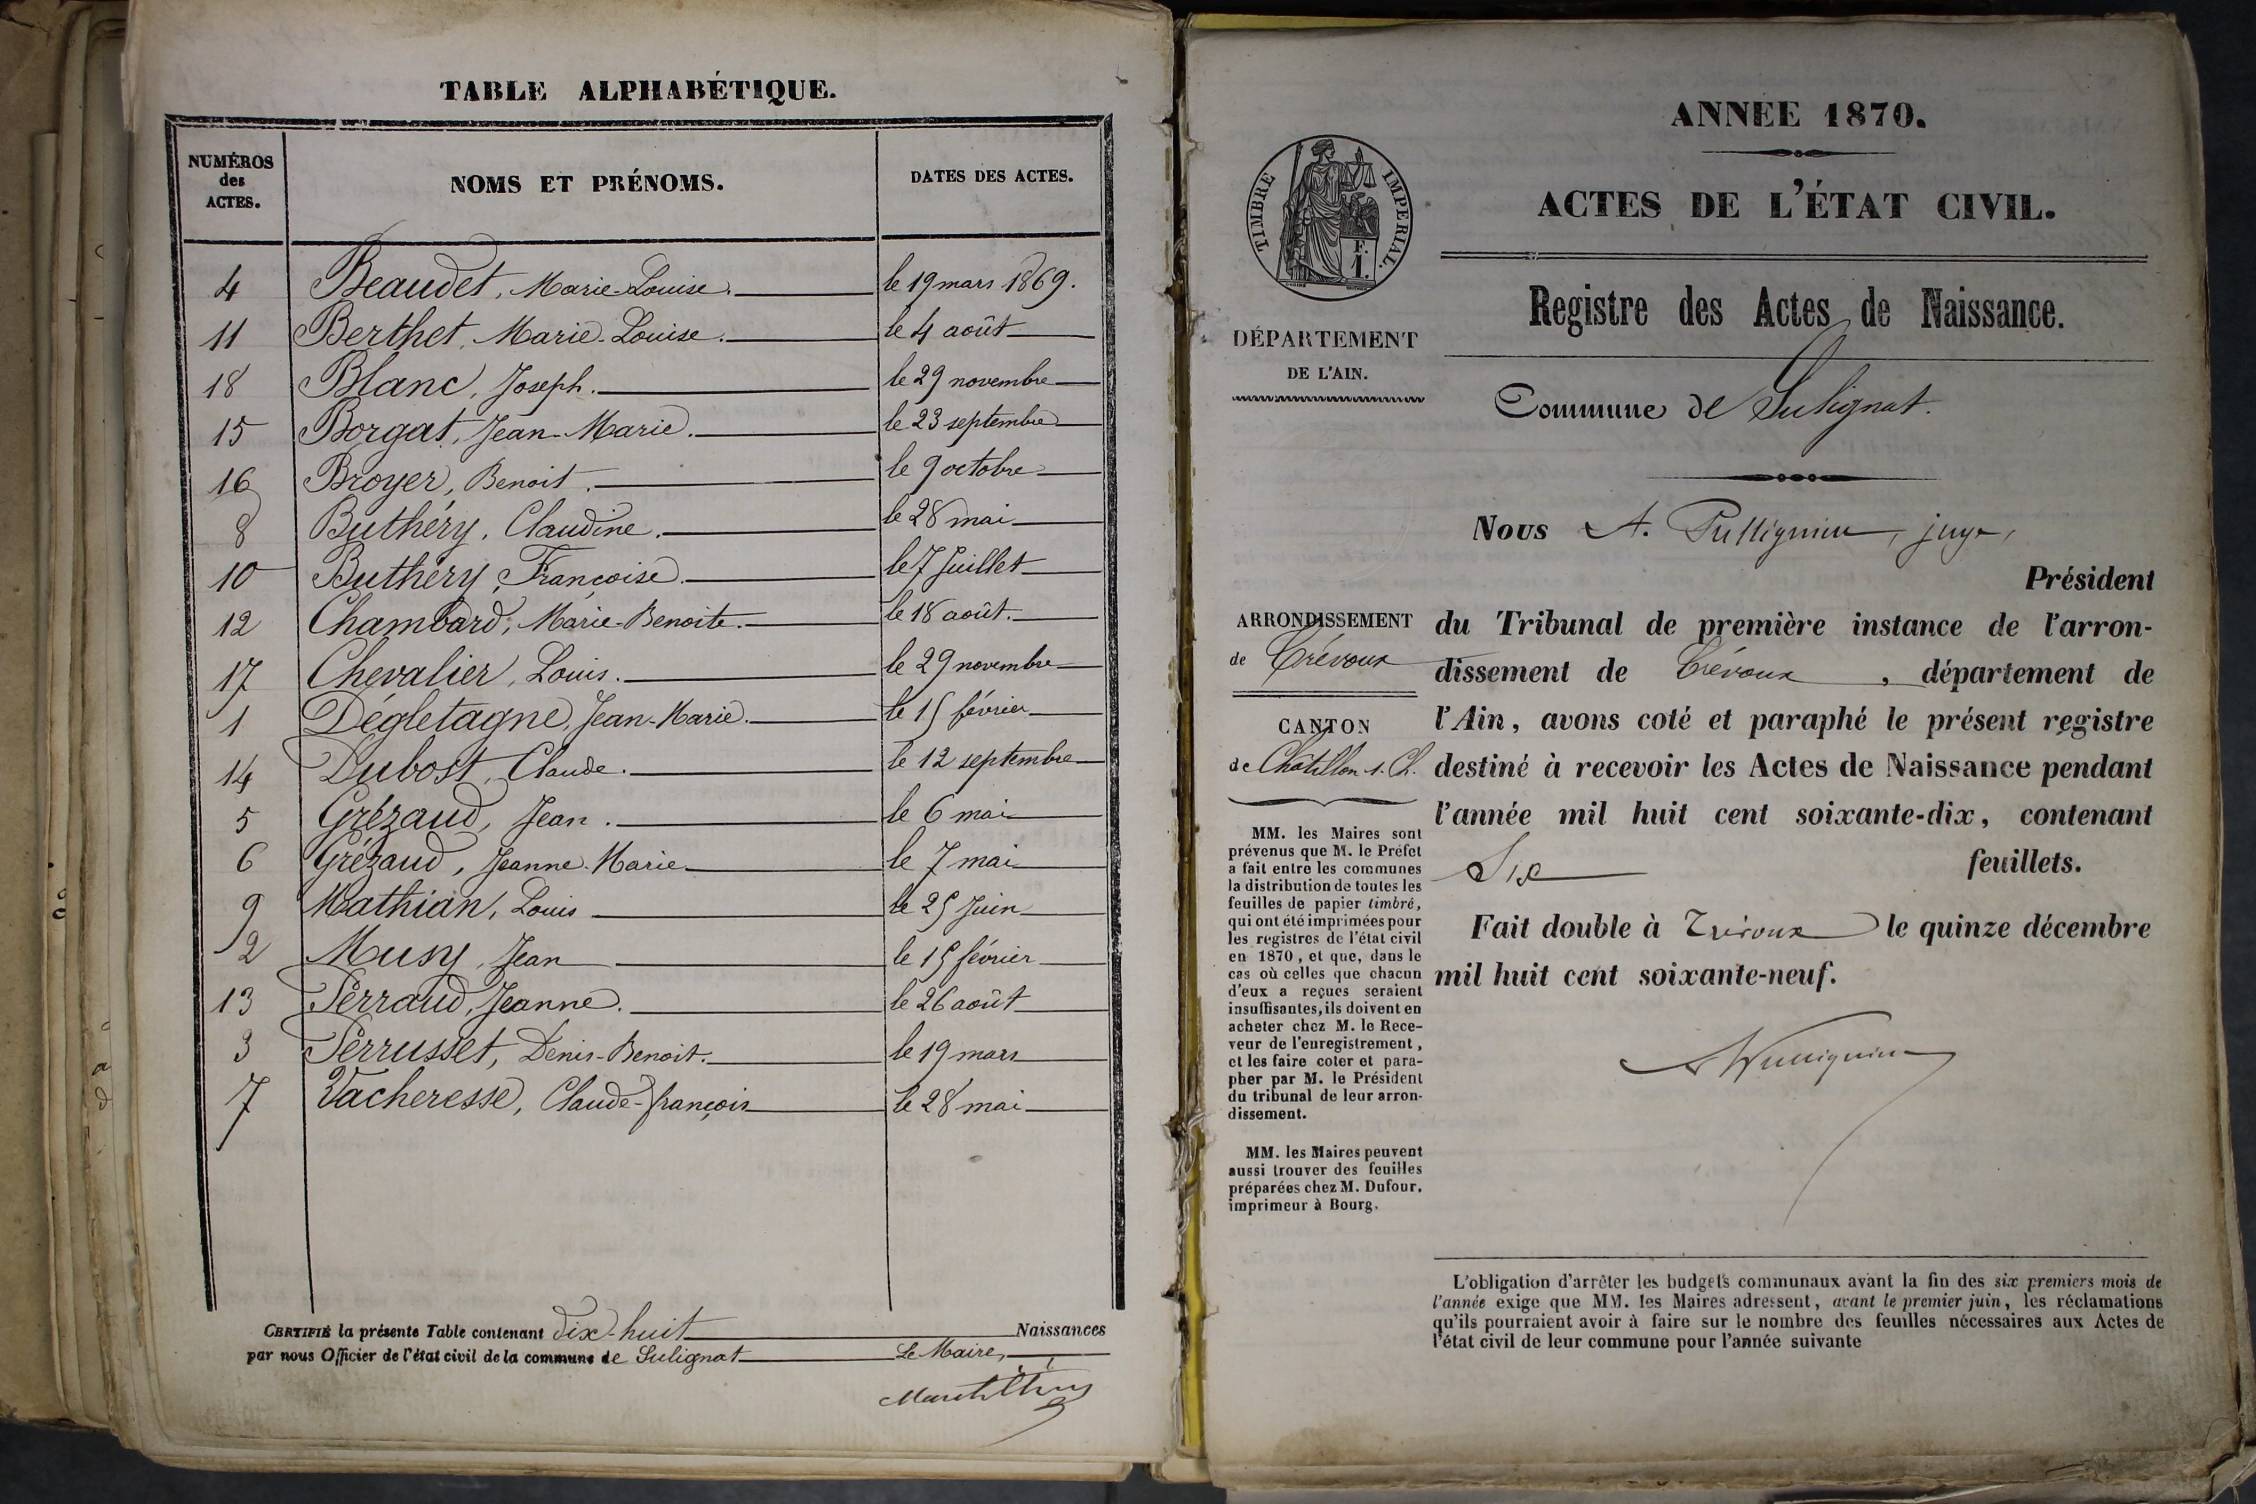 TABLE ALPHABÉTIQUE.
NUMÉROS des ACTES. NOMS ET PRÉNOMS. DATES DES ACTES.
4 Beaudet, Marie-Louise. le 19 mars 1869.
11 Berthet, Marie-Louise. le 4 août
18 Blanc, Joseph. le 29 novembre
15 Borgat, Jean-Marie. le 23 septembre
16 Broyer, Benoit. le 9 octobre
8 Buthéry, Claudine. le 28 mai
10 Buthéry, Françoise. le 7 Juillet
12 Chambard, Marie-Benoite. le 18 août.
17 Chevalier, Louis. le 29 novembre
1 Dégletagne, Jean-Marie. le 15 février
14 Dubost, Claude. le 12 septembre
5 Grézaud, Jean. le 6 mai
6 Grézaud, Jeanne-Marie le 7 mai
9 Mathian, Louis le 25 Juin
2 Musy, Jean le 15 février
13 Perraud, Jeanne. le 26 août
3 Perrusset, Denis-Benoit. le 19 mars
7 Vacheresse, Claude-françois le 28 mai
CERTIFIÉ la présente Table contenant dix-huit Naissances
par nous Officier de l'état civil de la commune de Sulignat Le Maire,
ANNÉE 1870.
TIMBRE IMPERIAL.
F.
1.
ACTES DE L'ÉTAT CIVIL.
Registre des Actes de Naissance.
DÉPARTEMENT
DE L'AIN.
Commune de Sulignat.
Nous A. juge,
Président
ARRONDISSEMENT
de Trévoux
CANTON
de Châtillon s. Ch.
du Tribunal de première instance de l'arron-
dissement de Trévoux, département de
l'Ain, avons coté et paraphé le présent registre
destiné à recevoir les Actes de Naissance pendant
l'année mil huit cent soixante-dix, contenant
Six feuillets.
Fait double à Trévoux le quinze décembre
mil huit cent soixante-neuf.
MM. les Maires sont
prévenus que M. le Préfet
a fait entre les communes
la distribution de toutes les
feuilles de papier timbré,
qui ont été imprimées pour
les registres de l'état civil
en 1870, et que, dans le
cas où celles que chacun
d'eux a reçues seraient
insuffisantes, ils doivent en
acheter chez M. le Rece-
veur de l'enregistrement,
et les faire coter et para-
pher par M. le Président
du tribunal de leur arron-
dissement.
MM. les Maires peuvent
aussi trouver des feuilles
préparées chez M. Dufour,
imprimeur à Bourg.
L'obligation d'arrêter les budgets communaux avant la fin des six premiers mois de
l'année exige que MM. les Maires adressent, avant le premier juin, les réclamations
qu'ils pourraient avoir à faire sur le nombre des feuilles nécessaires aux Actes de
l'état civil de leur commune pour l'année suivante